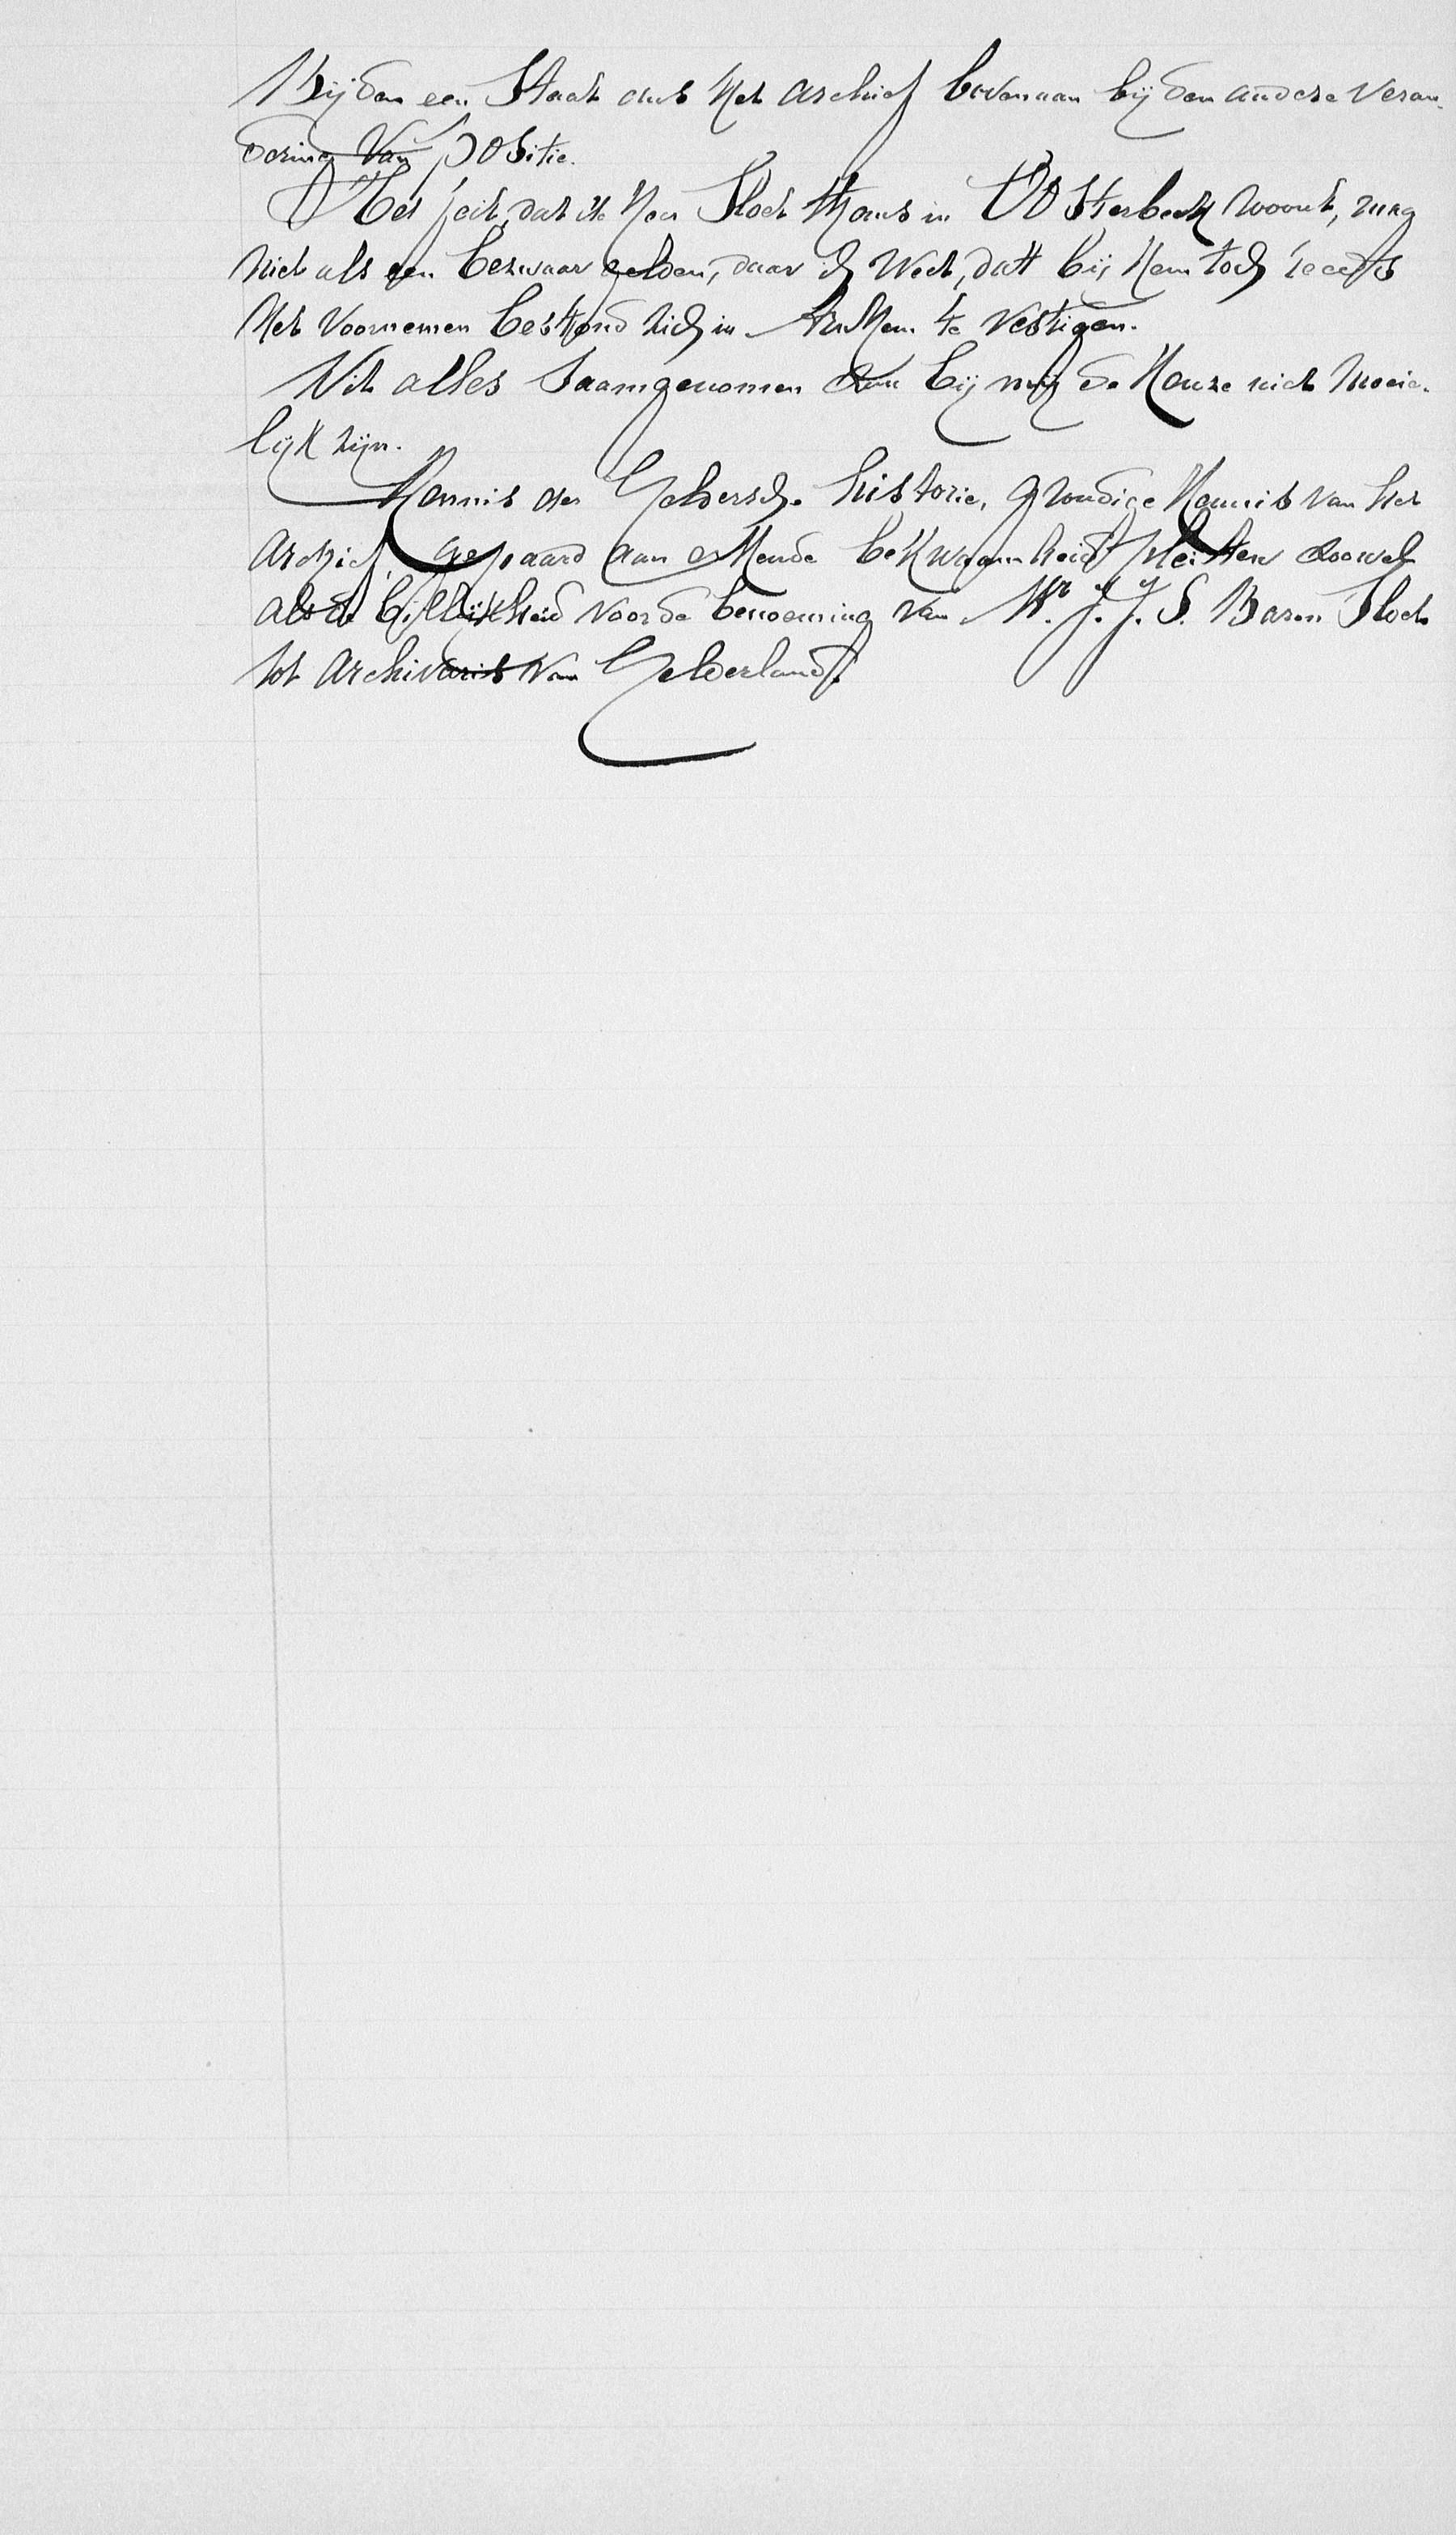 Bij den een Staat dus het archief bovenaan bij den andere veran-
dering van positie.
Het feit, dat de Heer Sloet thans in Oosterbeek woont, mag
niet als een bezwaar gelden, daar ik weet, dat bij hem toch reeds
het voornemen bestond zich in Arnhem te vestigen.
Uit alles saamgenomen kan bij mij de keuze niet moeie-
lijk zijn.
Kennis der Geldersche historie, grondige kennis van het
archief, gepaard aan erkende bekwaamheid pleiten zoowel
als de billijkheid voor de benoeming van Mr. J. J. S. Baron Sloet
tot archivaris van Gelderland.